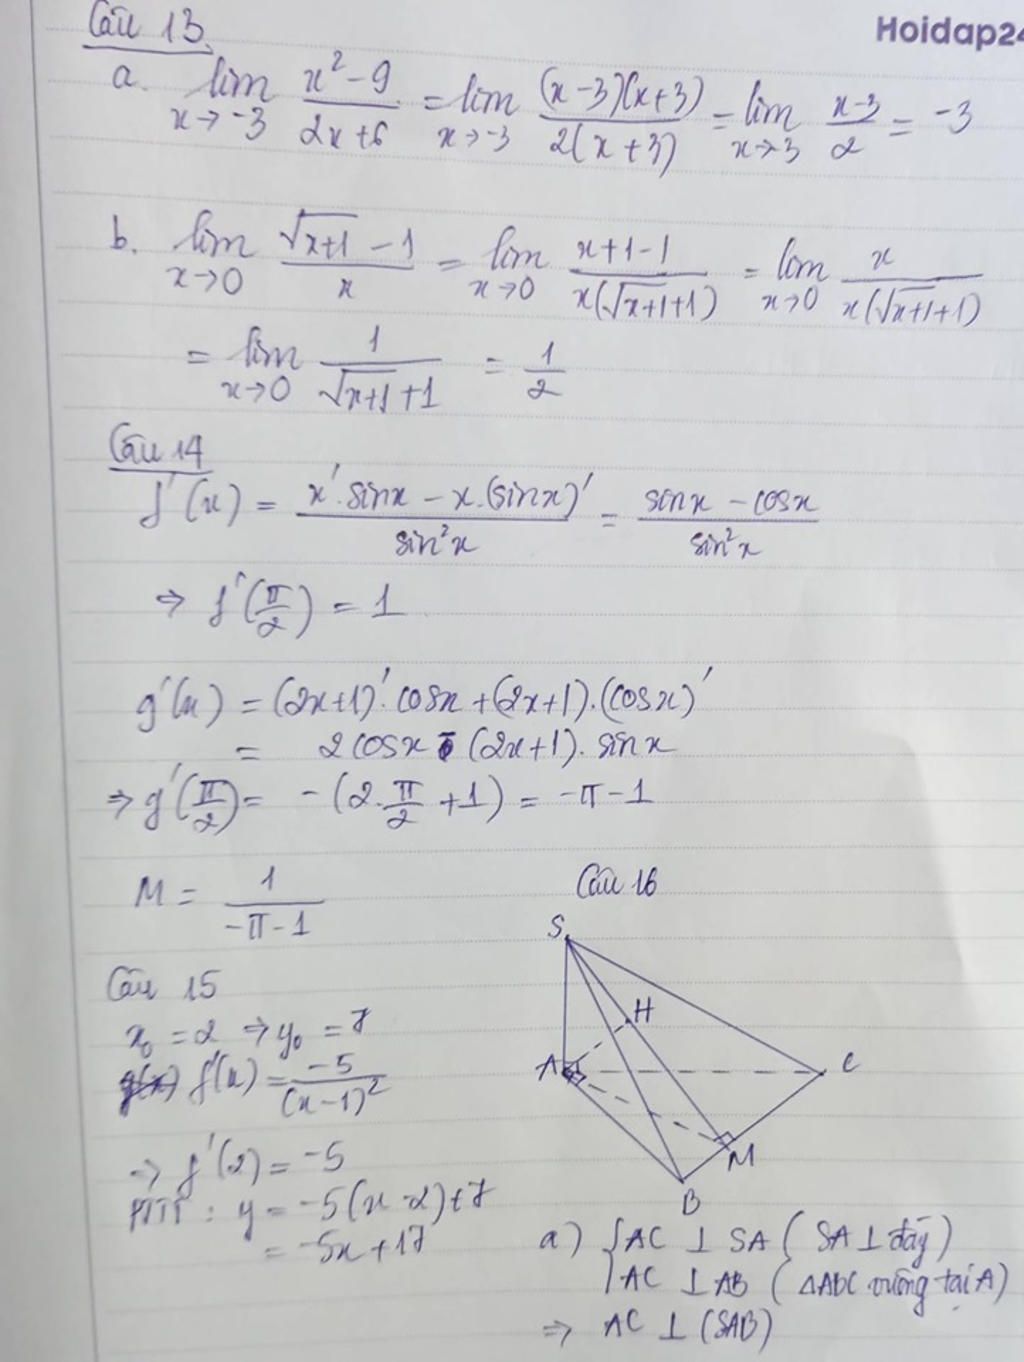 Hoidap24
Câu 13.
a. lim x→-3 (x²-9)/(2x+6) = lim x→-3 ((x-3)(x+3))/(2(x+3)) = lim x→3 (x-3)/2 = -3
b. lim x→0 (√(x+1) - 1)/x = lim x→0 (x+1-1)/(x(√(x+1)+1)) = lim x→0 x/(x(√(x+1)+1))
= lim x→0 1/(√(x+1)+1) = 1/2
Câu 14
f'(x) = (x'.sinx - x.(sinx)')/(sin²x) = (sinx - cosx)/(sin²x)
⇒ f'(π/2) = 1
g'(x) = (2x+1)'.cosx + (2x+1).(cosx)'
= 2cosx - (2x+1).sinx
⇒ g'(π/2) = -(2.π/2 + 1) = -π-1
M = 1/(-π-1)
Câu 15
x₀ = 2 ⇒ y₀ = 7
f'(x) = -5/(x-1)²
⇒ f'(2) = -5
PTTT : y = -5(x-2)+7
= -5x+17
Câu 16
S
H
A
C
M
B
a) { AC ⊥ SA ( SA ⊥ đáy)
AC ⊥ AB ( ΔABC vuông tại A)
⇒ AC ⊥ (SAB)